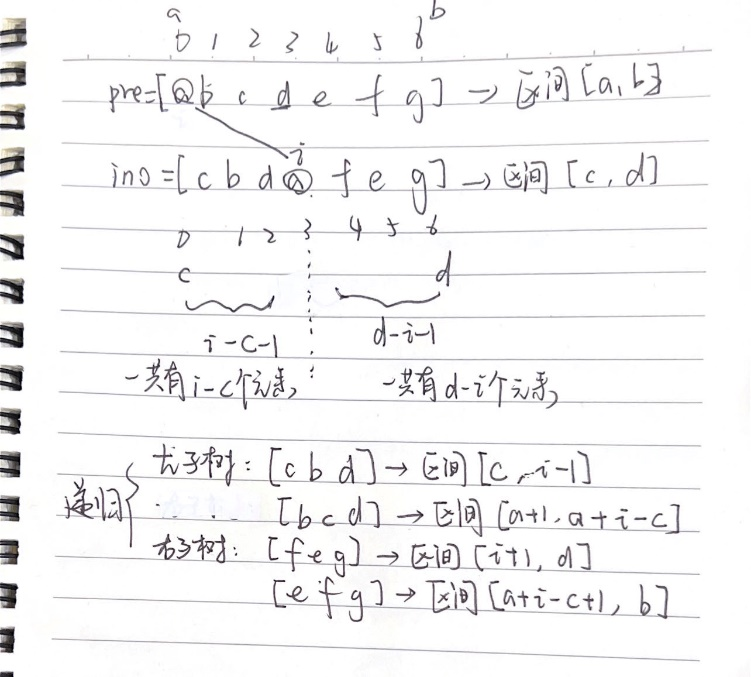 a b
0 1 2 3 4 5 6
pre=[a b c d e f g] → 区间[a,b]
i
ino=[c b d a f e g] → 区间[c,d]
0 1 2 3 4 5 6
c d
i-c-1 d-i-1
一共有i-c个元素, 一共有d-i个元素,
左子树: [c b d] → 区间[c, i-1]
递归 [b c d] → 区间[a+1, a+i-c]
右子树: [f e g] → 区间[i+1, d]
[e f g] → 区间[a+i-c+1, b]